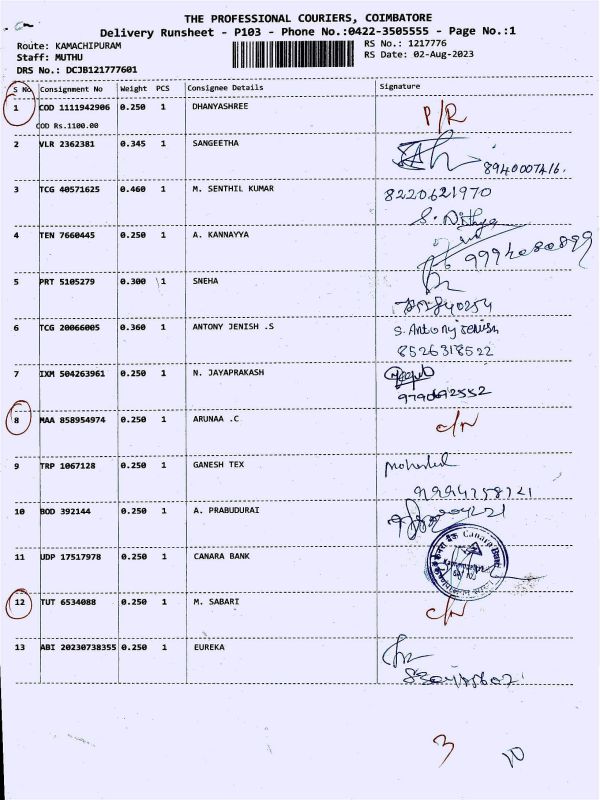 THE PROFESSIONAL COURIERS, COIMBATORE
Delivery Runsheet - P103 - Phone No.:0422-3505555 - Page No.:1
Route: KAMACHIPURAM
RS No.: 1217776
Staff: MUTHU
RS Date: 02-Aug-2023
DRS No.: DCJB121777601
S No Consignment No Weight PCS Consignee Details Signature
1 COD 1111942906 0.250 1 DHANYASHREE P/R
COD Rs.1100.00
2 VLR 2362381 0.345 1 SANGEETHA
8940007416.
3 TCG 40571625 0.460 1 M. SENTHIL KUMAR 8220621970
S. Nithya
4 TEN 7660445 0.250 1 A. KANNAYYA
5 PRT 5105279 0.300 1 SNEHA
6 TCG 20066005 0.360 1 ANTONY JENISH .S S. Antony Jenish
8526318522
7 IXM 504263961 0.250 1 N. JAYAPRAKASH
9790692552
8 MAA 858954974 0.250 1 ARUNAA .C C/N
9 TRP 1067128 0.250 1 GANESH TEX
10 BOD 392144 0.250 1 A. PRABUDURAI
11 UDP 17517978 0.250 1 CANARA BANK Canara Bank
12 TUT 6534088 0.250 1 M. SABARI C/N
13 ABI 20230738355 0.250 1 EUREKA
3 10